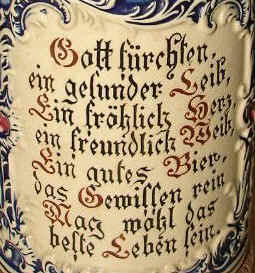 Gott fürchten,
ein gesunder Leib,
Ein fröhlich Herz,
ein freundlich Weib,
Ein gutes Bier,
das Gewissen rein
Mag wohl das
beste Leben sein.